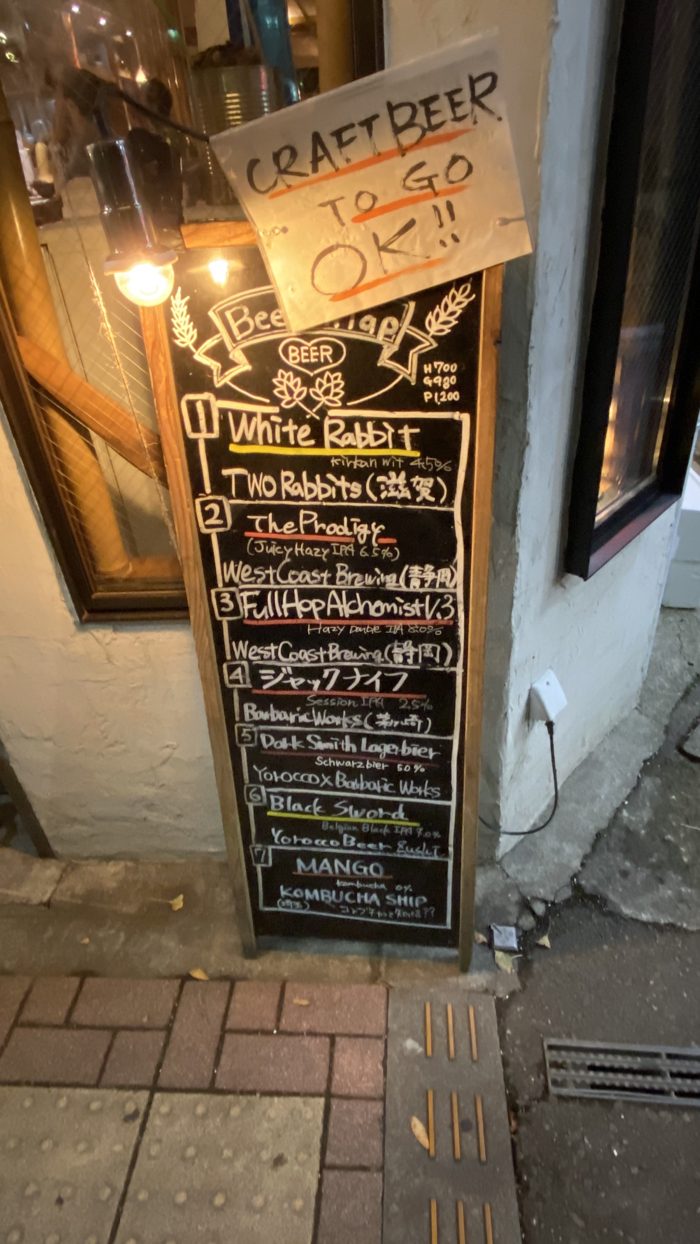 CRAFT BEER
TO GO
OK!!
BEER
H 700
G 980
P 1,200
1
White Rabbit
Kinkan wit 4.5%
TWO Rabbits (滋賀)
2
The Prodigy
(Juicy Hazy IPA 6.5%)
West Coast Brewing (静岡)
3
Full Hop Alchemist V.3
Hazy Double IPA 8.0%
West Coast Brewing (静岡)
4
ジャックナイフ
Session IPA 2.5%
Barbaric Works (茅ヶ崎)
5
Dark Smith Lagerbier
Schwarzbier 5.0%
Yorocco x Barbaric Works
6
Black Sword
Belgian Black IPA 7.0%
Yorocco Beer
7
MANGO
Kombucha 0%
KOMBUCHA SHIP
(埼玉)